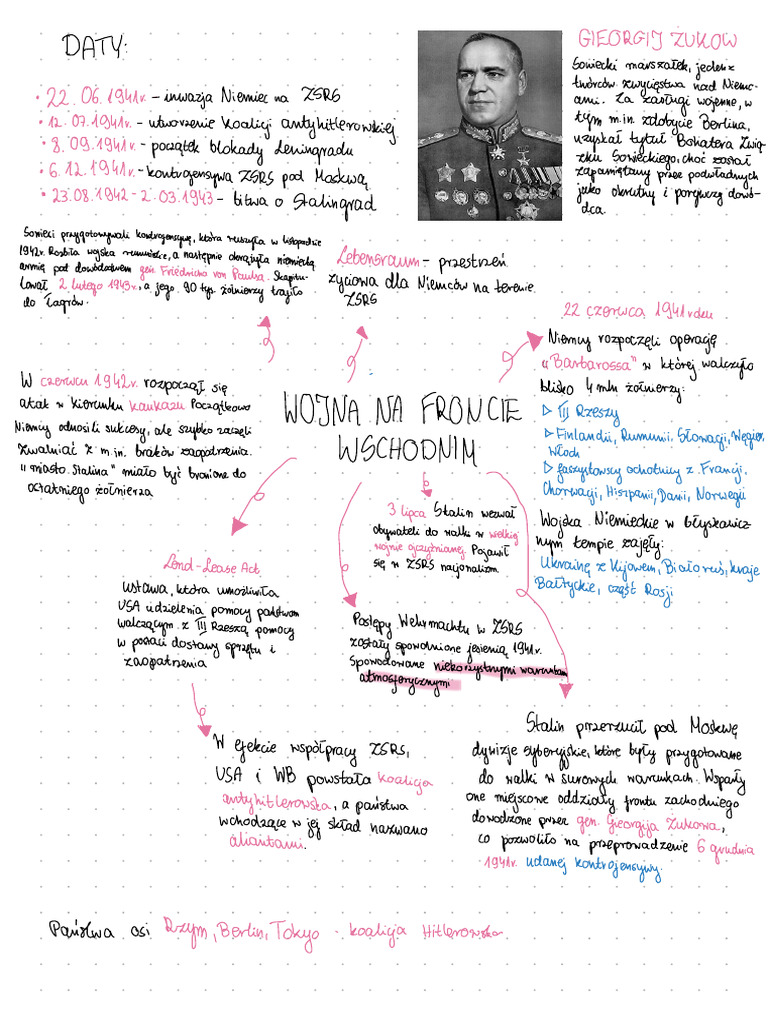 DATY:
• 22.06.1941r. – inwazja Niemiec na ZSRS
• 12.07.1941r. – utworzenie koalicji antyhitlerowskiej
• 8.09.1941r. – początek blokady Leningradu
• 6.12.1941r. – kontrofensywa ZSRS pod Moskwą
• 23.08.1942 – 2.03.1943 – bitwa o Stalingrad
GIEORGIJ ŻUKOW
Sowiecki marszałek, jeden z
twórców zwycięstwa nad Niemc-
ami. Za zasługi wojenne, w
tym m.in. zdobycie Berlina,
uzyskał tytuł Bohatera Zwią-
zku Sowieckiego, choć został
zapamiętany przez podwładnych
jako okrutny i porywczy dowó-
dca.
Sowieci przygotowywali kontrofensywę, która ruszyła w listopadzie
1942r. Rozbiła wojska rumuńskie, a następnie okrążyła niemiecką
armię pod dowództwem gen. Friedricha von Paulsa. Skapitu-
lował 2 lutego 1943r., a jego 90 tyś. żołnierzy trafiło
do Łagrów.
Lebensraum – przestrzeń
życiowa dla Niemców na terenie
ZSRS
22 czerwca 1941 roku
Niemcy rozpoczęli operację
"Barbarossa" w której walczyło
blisko 4 mln żołnierzy:
▷ III Rzeszy
▷ Finlandii, Rumunii, Słowacji, Węgier,
Włoch
▷ faszystowscy ochotnicy z Francji,
Chorwacji, Hiszpanii, Danii, Norwegii
Wojska Niemieckie w błyskawicz-
nym tempie zajęły:
Ukrainę z Kijowem, Białoruś, kraje
Bałtyckie, część Rosji
W czerwcu 1942r. rozpoczął się
atak w kierunku kaukazu Początkowo
Niemcy odnosili sukcesy, ale szybko zaczęli
zwalniać z m.in. braków zaopatrzenia.
"miasto Stalina" miało być bronione do
ostatniego żołnierza
WOJNA NA FRONCIE
WSCHODNIM
3 lipca Stalin wezwał
obywateli do walki w wielkiej
wojnie ojczyźnianej. Pojawił
się w ZSRS nacjonalizm.
Lend-Lease Act
Ustawa, która umożliwiła
USA udzielenia pomocy państwom
walczącym z III Rzeszą pomocy
w postaci dostawy sprzętu i
zaopatrzenia
Postępy Wehrmachtu w ZSRS
zostały spowolnione jesienią 1941r.
Spowodowane niekorzystnymi warunkami
atmosferycznymi
W efekcie współpracy ZSRS,
USA i WB powstała koalicja
antyhitlerowska, a państwa
wchodzące w jej skład nazwano
aliantami.
Stalin przerzucił pod Moskwę
dywizje syberyjskie, które były przygotowane
do walki w surowych warunkach. Wsparły
one miejscowe oddziały frontu zachodniego
dowodzone przez gen. Georgija Żukowa,
co pozwoliło na przeprowadzenie 6 grudnia
1941r. udanej kontrofensywy.
Państwa osi Rzym, Berlin, Tokyo – koalicja Hitlerowska